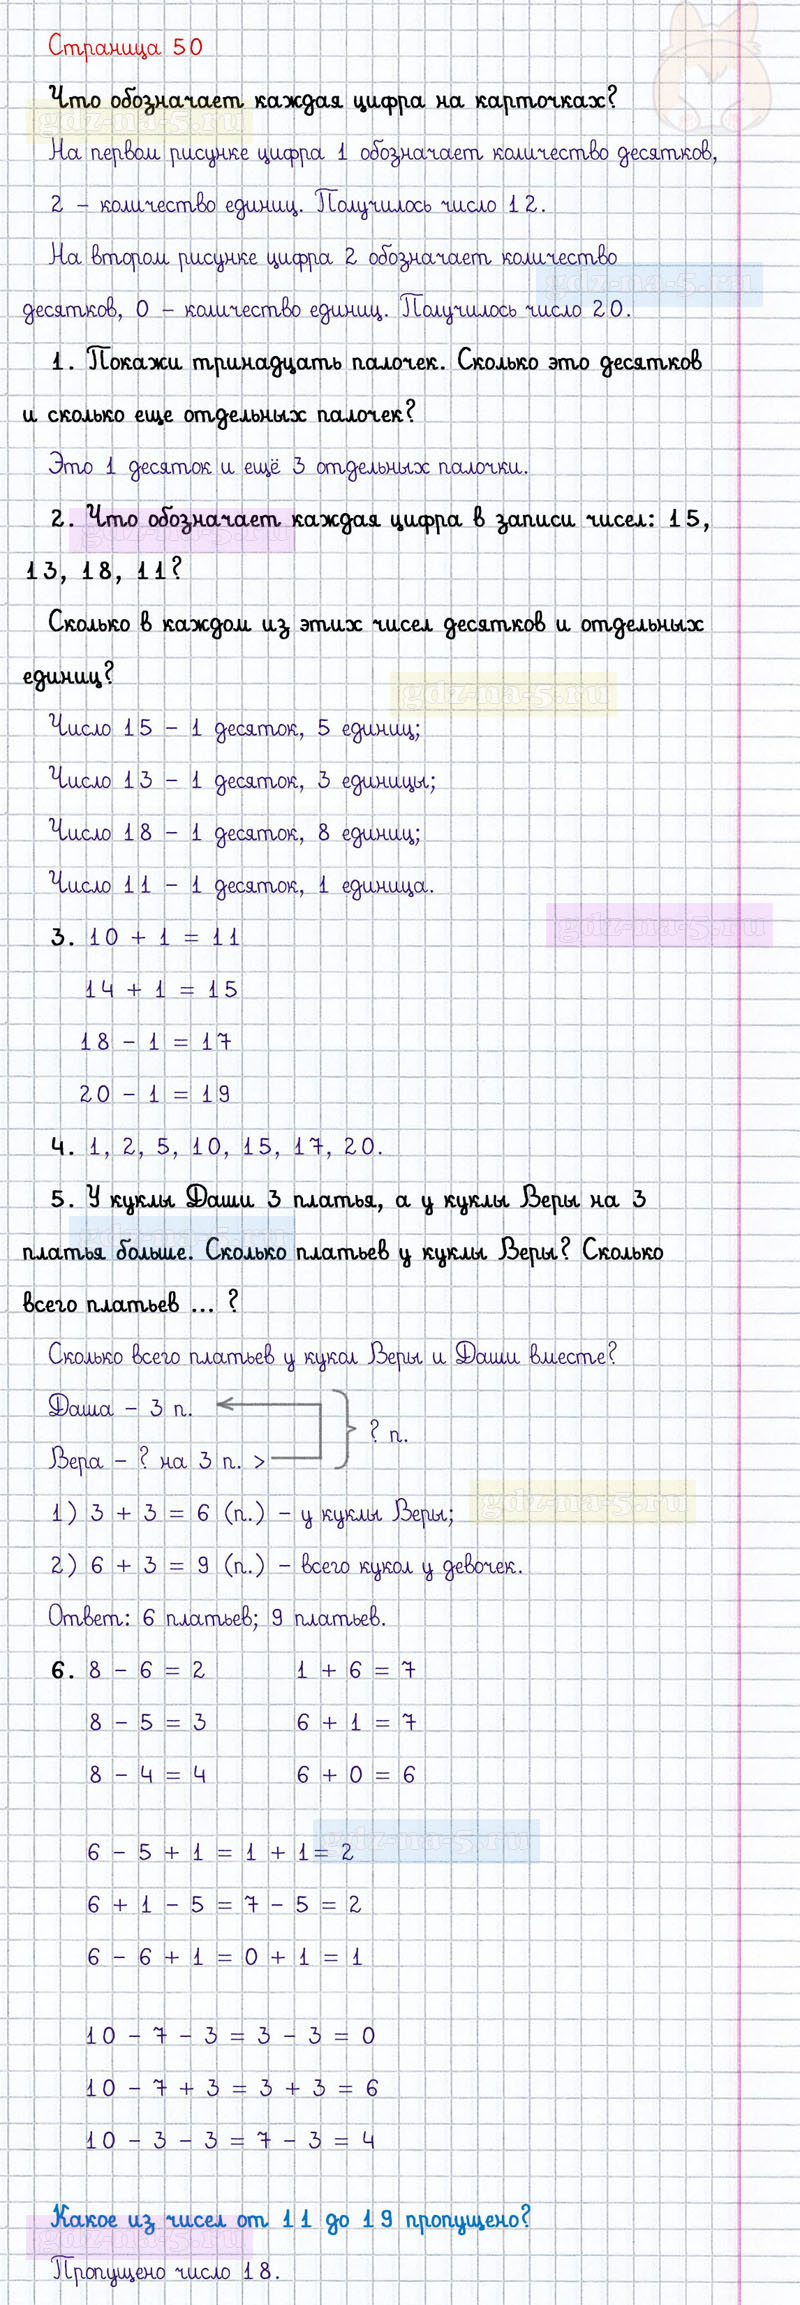 Страница 50
Что обозначает каждая цифра на карточках?
gdz-na-5.ru
На первом рисунке цифра 1 обозначает количество десятков,
2 – количество единиц. Получилось число 12.
На втором рисунке цифра 2 обозначает количество
gdz-na-5.ru
десятков, 0 – количество единиц. Получилось число 20.
1. Покажи тринадцать палочек. Сколько это десятков
и сколько еще отдельных палочек?
Это 1 десяток и ещё 3 отдельных палочки.
2. Что обозначает каждая цифра в записи чисел: 15,
gdz-na-5.ru
13, 18, 11?
Сколько в каждом из этих чисел десятков и отдельных
единиц?
gdz-na-5.ru
Число 15 – 1 десяток, 5 единиц;
Число 13 – 1 десяток, 3 единицы;
Число 18 – 1 десяток, 8 единиц;
Число 11 – 1 десяток, 1 единица.
gdz-na-5.ru
3. 10 + 1 = 11
14 + 1 = 15
18 – 1 = 17
20 – 1 = 19
4. 1, 2, 5, 10, 15, 17, 20.
5. У куклы Даши 3 платья, а у куклы Веры на 3
gdz-na-5.ru
платья больше. Сколько платьев у куклы Веры? Сколько
всего платьев ... ?
Сколько всего платьев у кукол Веры и Даши вместе?
Даша – 3 п.
? п.
Вера – ? на 3 п. >
gdz-na-5.ru
1) 3 + 3 = 6 (п.) – у куклы Веры;
2) 6 + 3 = 9 (п.) – всего кукол у девочек.
Ответ: 6 платьев; 9 платьев.
6. 8 – 6 = 2 1 + 6 = 7
8 – 5 = 3 6 + 1 = 7
8 – 4 = 4 6 + 0 = 6
gdz-na-5.ru
6 – 5 + 1 = 1 + 1 = 2
6 + 1 – 5 = 7 – 5 = 2
6 – 6 + 1 = 0 + 1 = 1
10 – 7 – 3 = 3 – 3 = 0
10 – 7 + 3 = 3 + 3 = 6
10 – 3 – 3 = 7 – 3 = 4
Какое из чисел от 11 до 19 пропущено?
gdz-na-5.ru
Пропущено число 18.